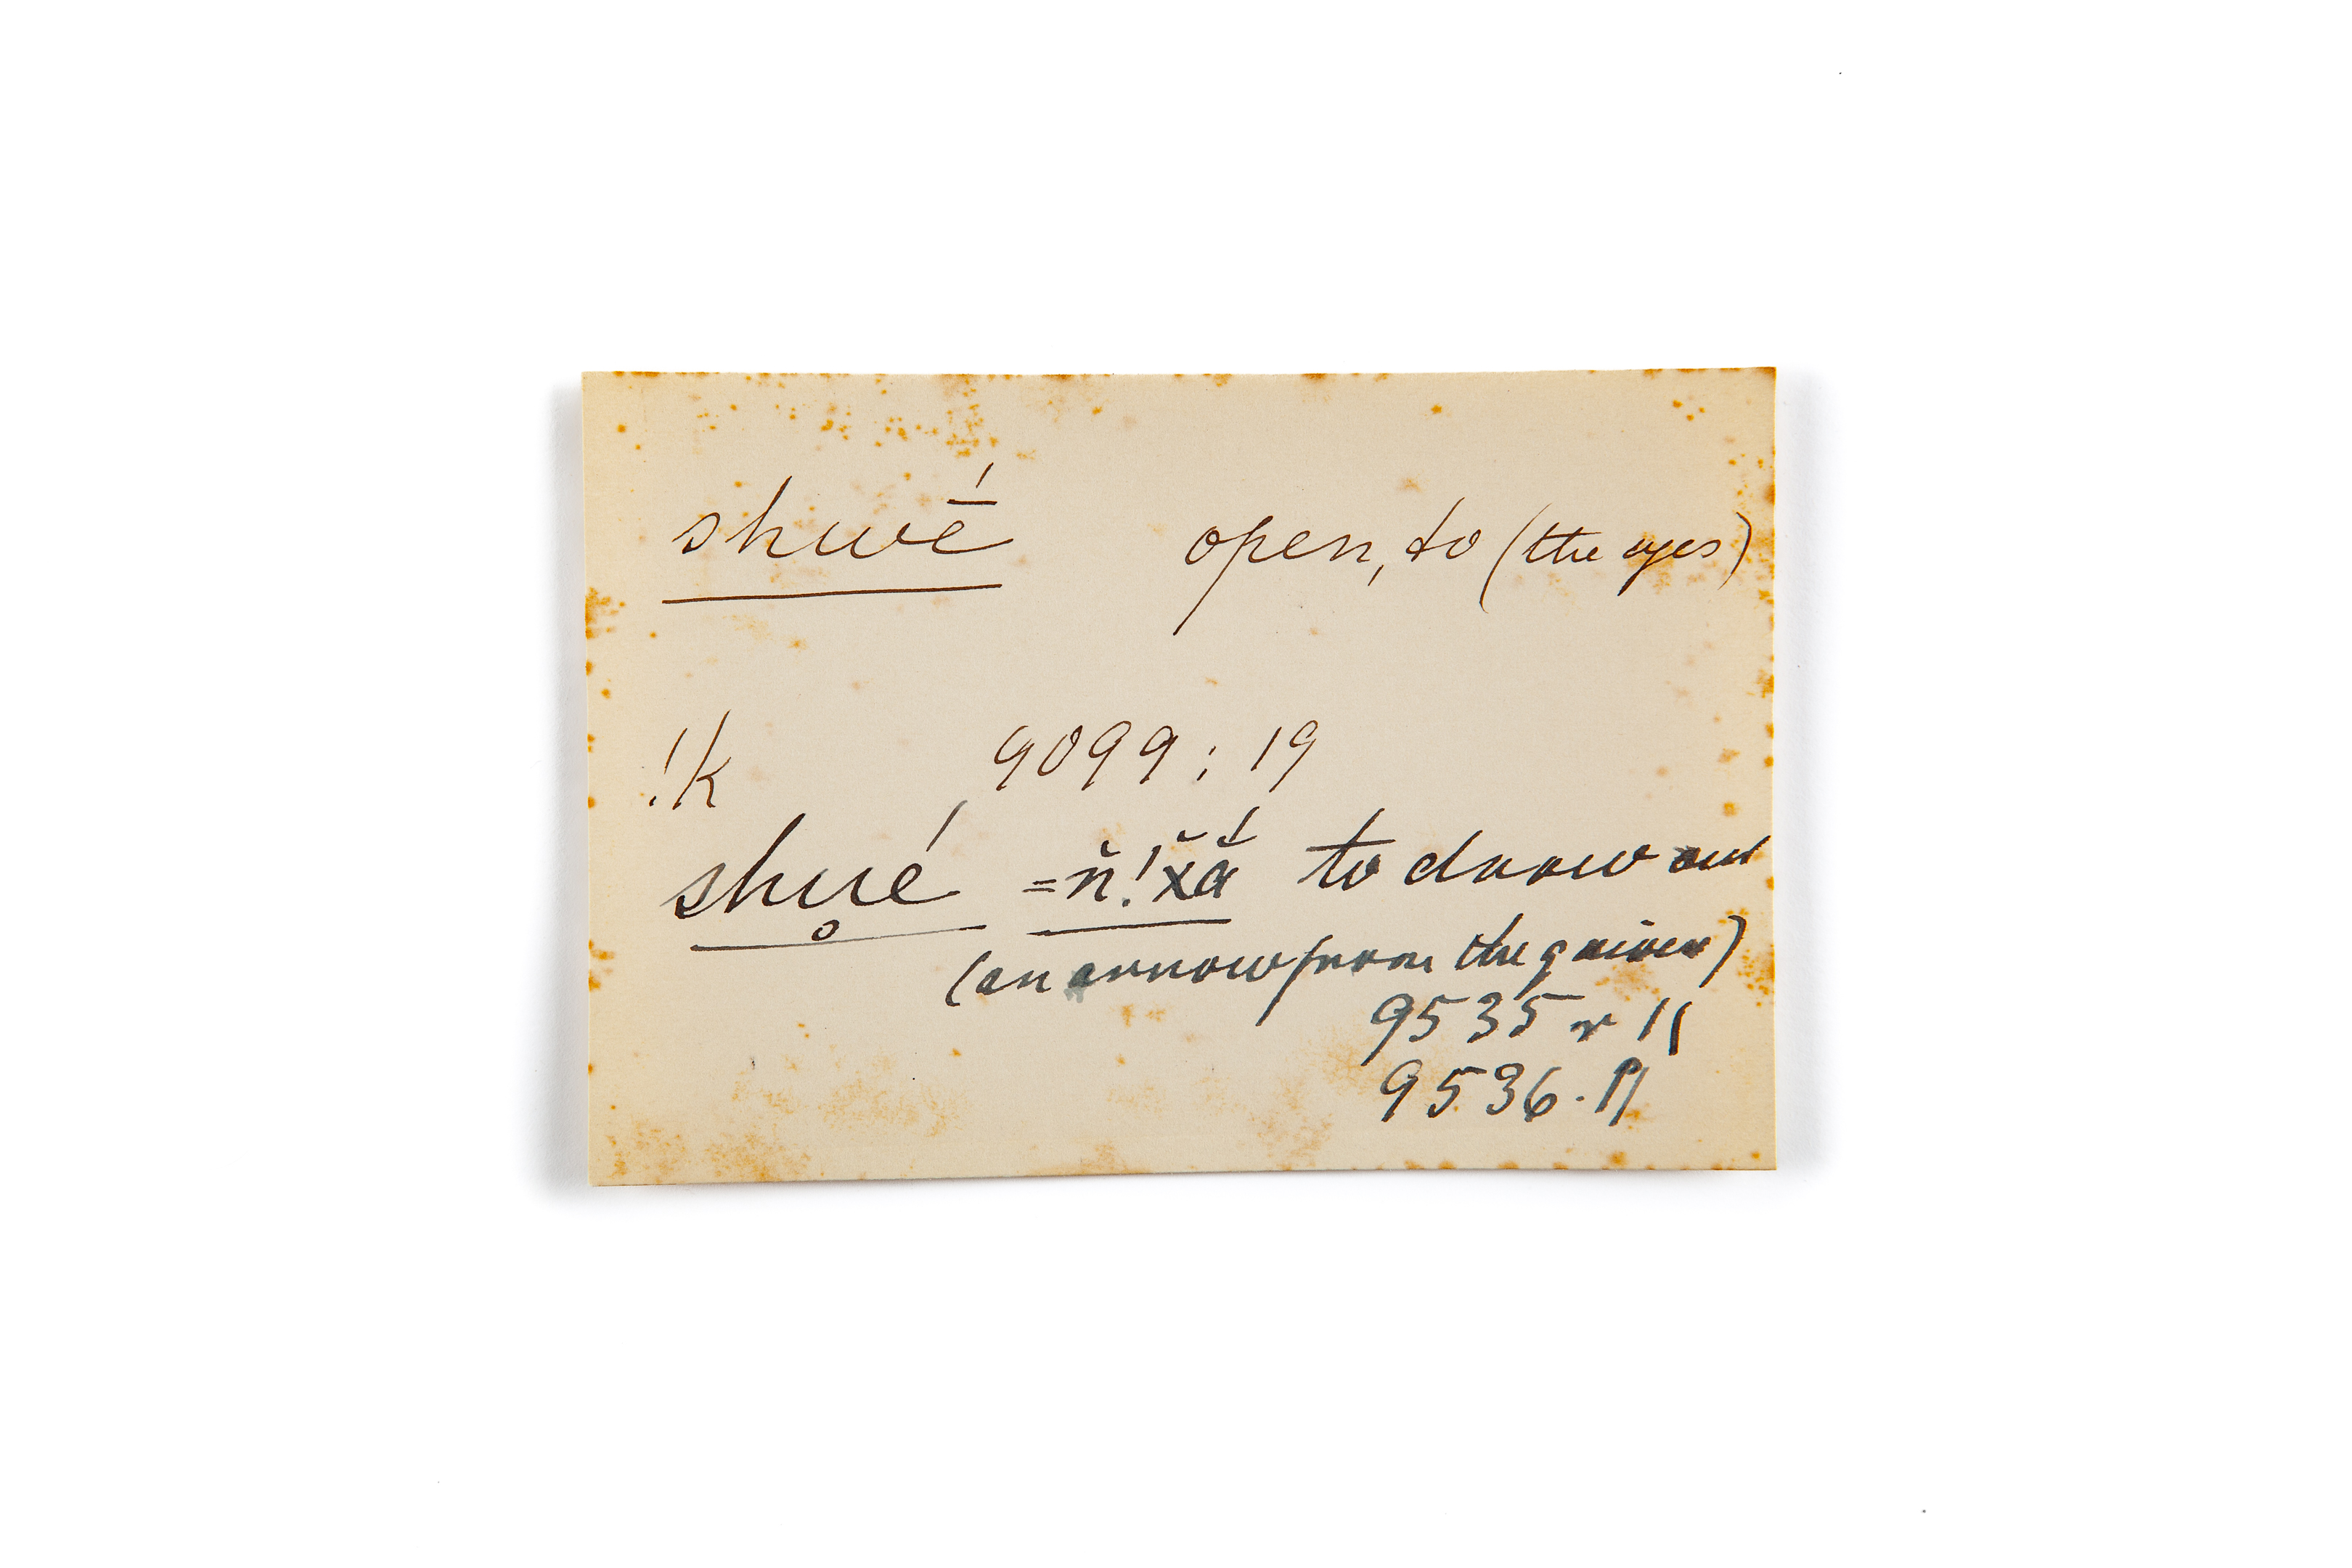 shwḗ open, to (the eyes)
!k 9099; 19
shu̥é = n̆!x̆ắ to draw out
(an arrow from the quiver)
9535 r 11
9536.